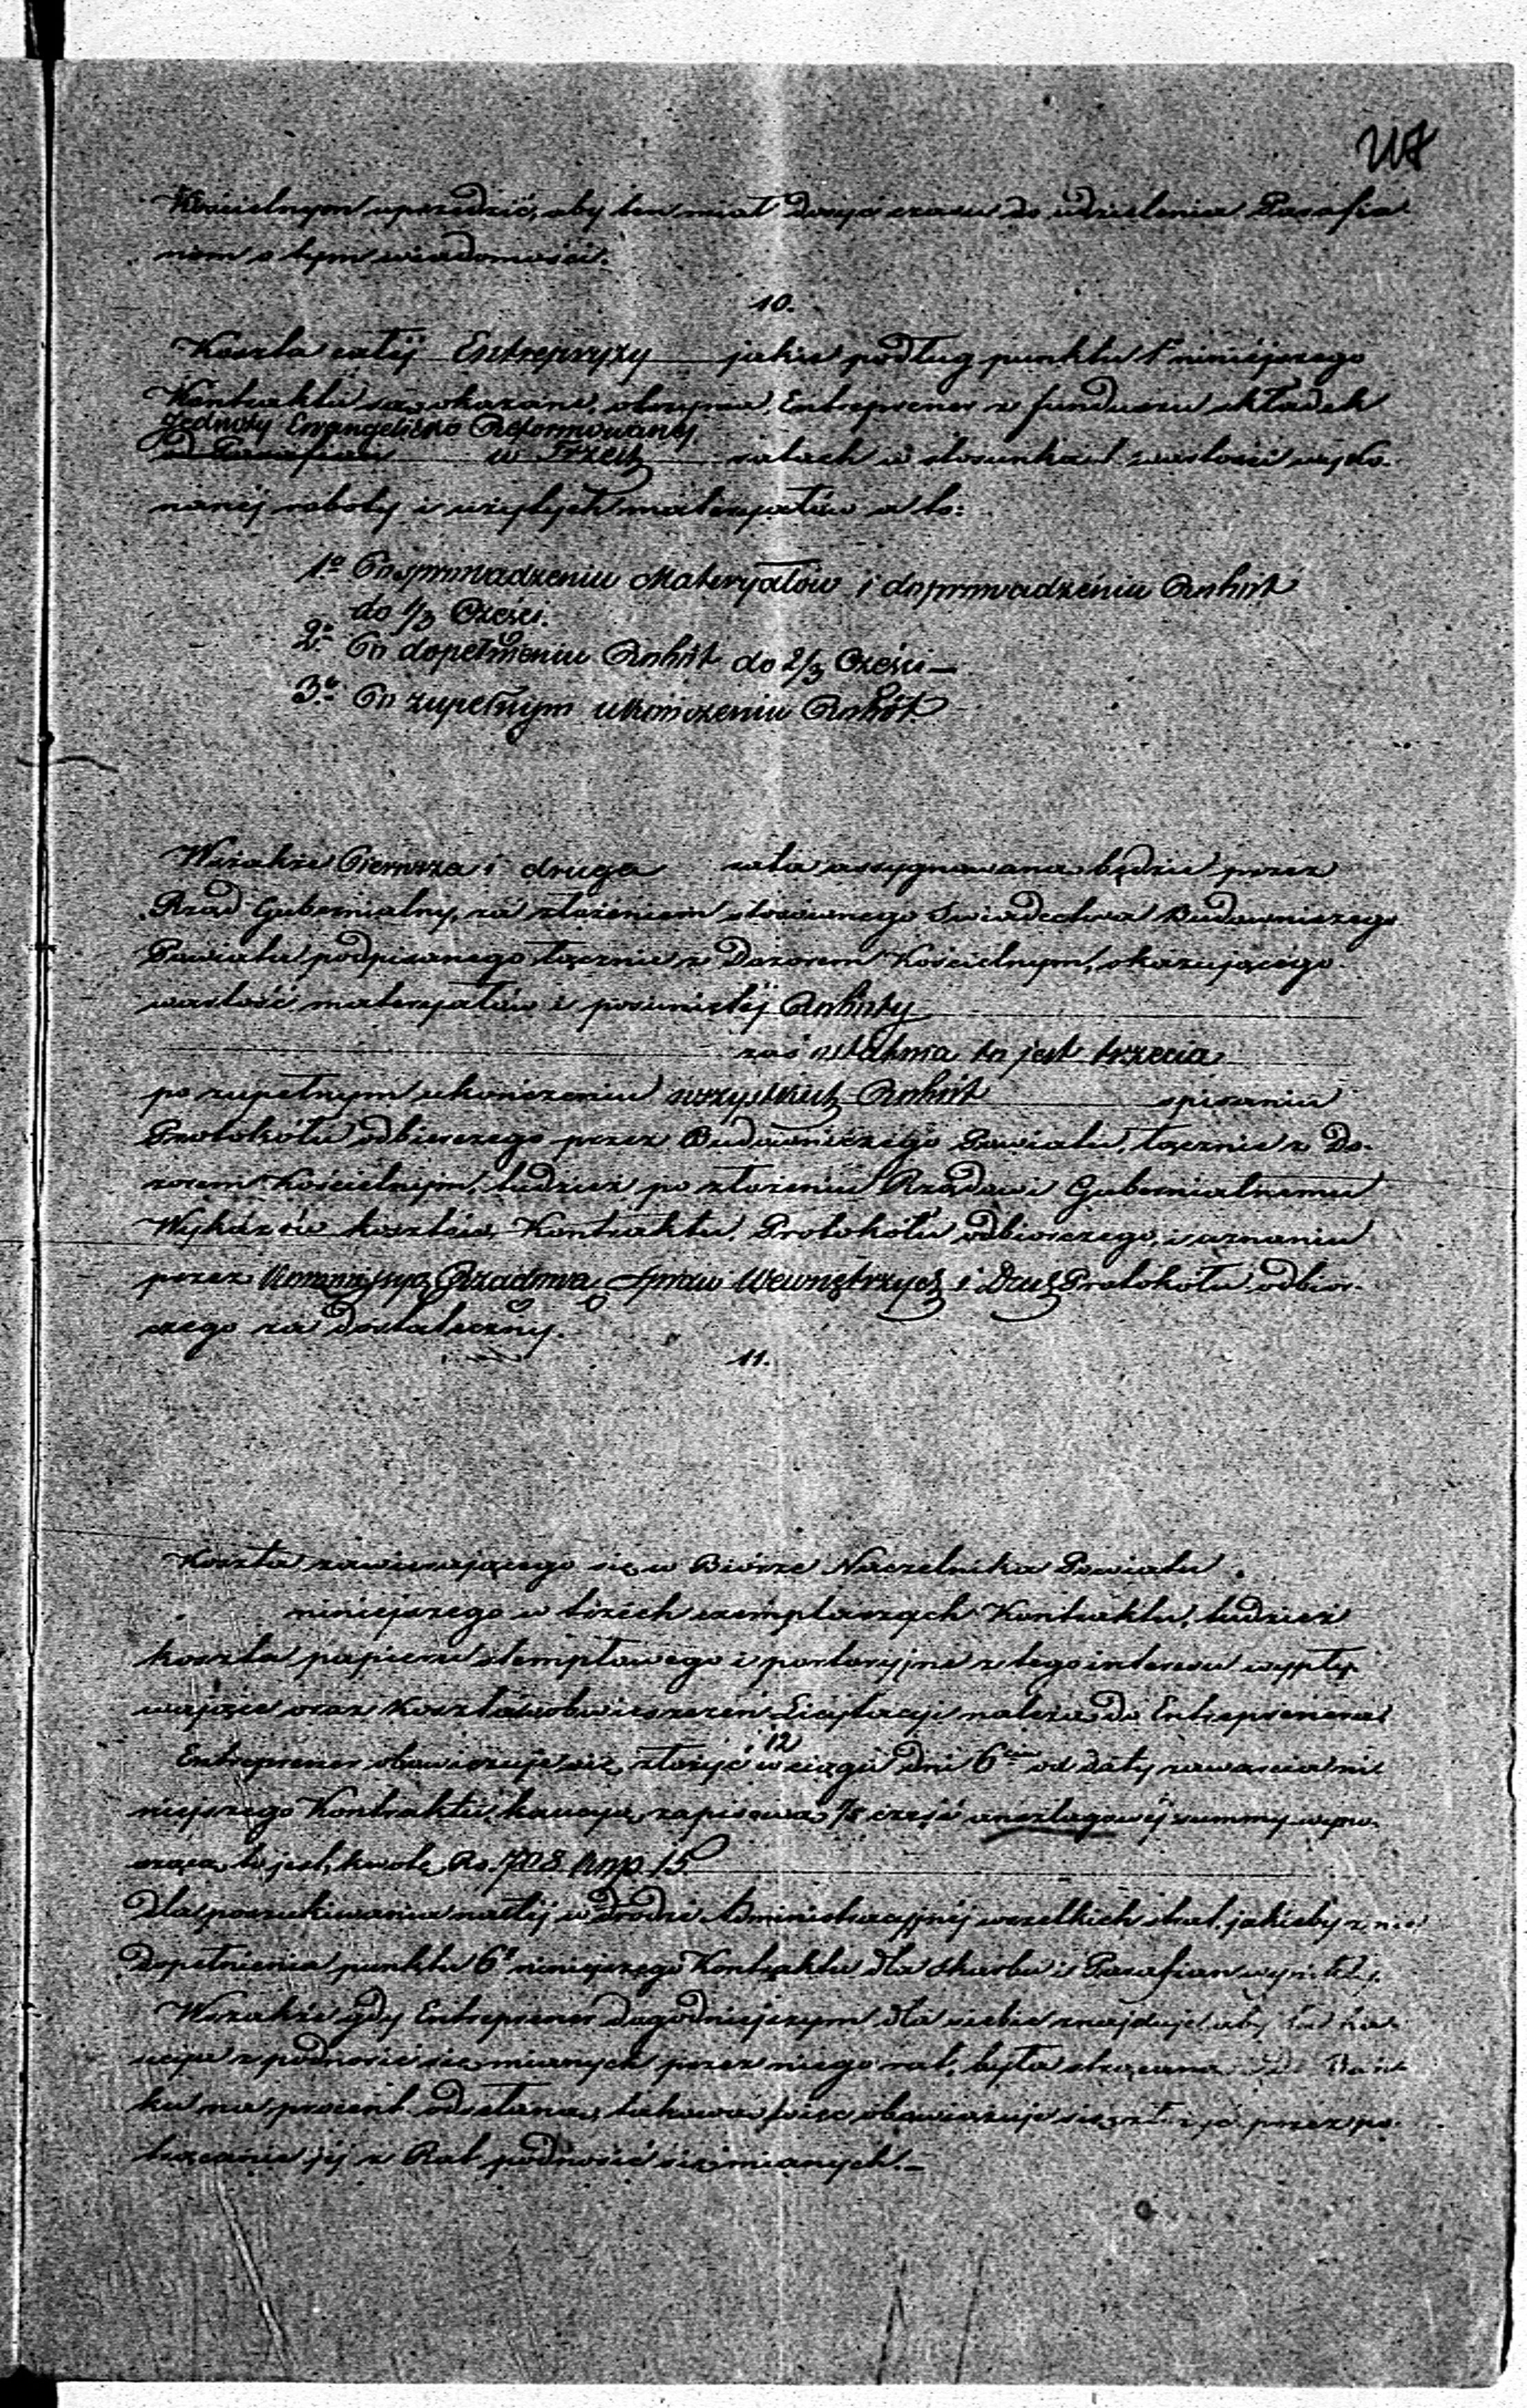 217
Kościelnym uprzedzić, aby ten miał dosyć czasu do udzielenia Parafia-
nom o tym wiadomości.
10.
Koszta całéj Entrepryzy jakie podług punktu 1 niniejszego
Kontraktu są okazane, otrzyma Entreprener z funduszu składek
Jednoty Ewangelicko Reformowanéj
od Parafian w Trzech ratach w stosunku wartości wyko-
nanéj roboty i użytych materyałów a to:
1o Po sprowadzeniu Materyałów i doprowadzeniu Robót
do 1/3 Części.
2o Po dopełnieniu Robót do 2/3 Części—
3o Po zupełnym ukończeniu Robót.
Wszakże Pierwsza i druga rata assygnowana będzie przez
Rząd Gubernialny, za złożeniem stosownego Świadectwa Budowniczego
Powiatu podpisanego łącznie z Dozorem Kościelnym, okazującego
wartość materyałów i posuniętéj Roboty
zaś ostatnia to jest trzecia
po zupełnym ukończeniu wszystkich Robót spisaniu
Protokółu odbiorczego przez Budowniczego Powiatu, łącznie z Do-
zorem Kościelnym, tudzież po złożeniu Rządowi Gubernialnemu
Wykazów kosztów, Kontraktu, Protokółu odbiorczego, i uznaniu
przez Kommissyą Rządową Spraw Wewnętrznych i Duch Protokółu odbior-
czego za dostateczny.
11.
Koszta zawierającego się w Biórze Naczelnika Powiatu
niniejszego w trzech exemplarzach Kontraktu, tudzież
koszta papieru stemplowego i portoryjne z tego interesu wypły-
wające oraz Kosztów obwieszczeń Licytacyi należą do Entreprenera
12
Entreprener obowiązuje się złożyć w ciągu dni 6ciu od daty zawarcia ni-
niejszego Kontraktu, kaucyą zapisową 1/5 część anszlagowéj summy wyno-
szącą, to jest, kwotę Rs. 708 kop. 15
dla poszukiwania na téj w drodze Administracyjnéj wszelkich strat, jakieby z nie
dopełnienia punktu 6o niniejszego Kontraktu dla skarbu i Parafian wynikły.
Wszakże gdy Entreprener dogodniejszym dla siebie znajduje aby ta ka-
ucya z podnosić się mianych przez niego rat, była strącana i do Ban-
ku na procent odsełana, takową więc obowiązuje się złożyć przez po-
trącanie jéj z Rat podnosić się mianych.—